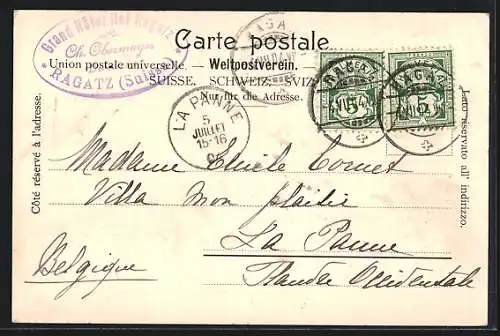 Grand Hôtel Hof Ragaz
Ch. Obermayer
RAGATZ (Suisse)
Carte postale
Union postale universelle. — Weltpostverein. —
SUISSE. SCHWEIZ. SVIZ
Nur für die Adresse.
Côté réservé à l'adresse.
Lato riservato all' indirizzo.
RAGAZ
5
RAGAZ
5
LA PANNE
5
JUILLET
15-16
Madame Cornet
Villa Mon plaisir
La Panne
Flandre Occidentale
Belgique